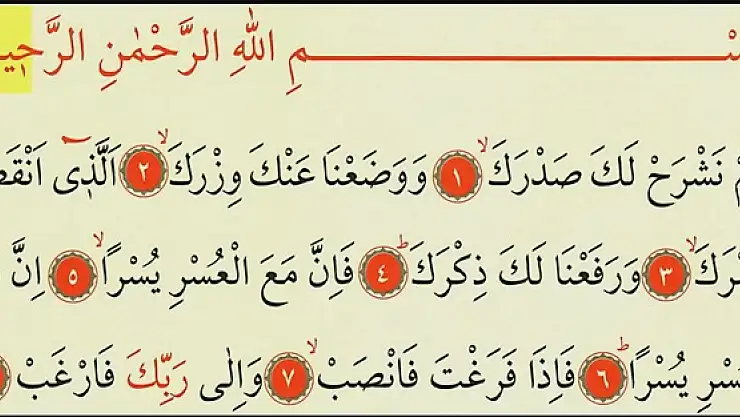 ـمِ اللهِ الرَّحْمٰنِ الرَّحٖيـ
نَشْرَحْ لَكَ صَدْرَكَۙ ١ وَوَضَعْنَا عَنْكَ وِزْرَكَۙ ٢ اَلَّذٖٓى اَنْقَضَ
وَرَفَعْنَا لَكَ ذِكْرَكَۜ ٤ فَاِنَّ مَعَ الْعُسْرِ يُسْرًاۙ ٥ اِنَّ
يُسْرًاۜ ٦ فَاِذَا فَرَغْتَ فَانْصَبْۙ ٧ وَاِلٰى رَبِّكَ فَارْغَبْ